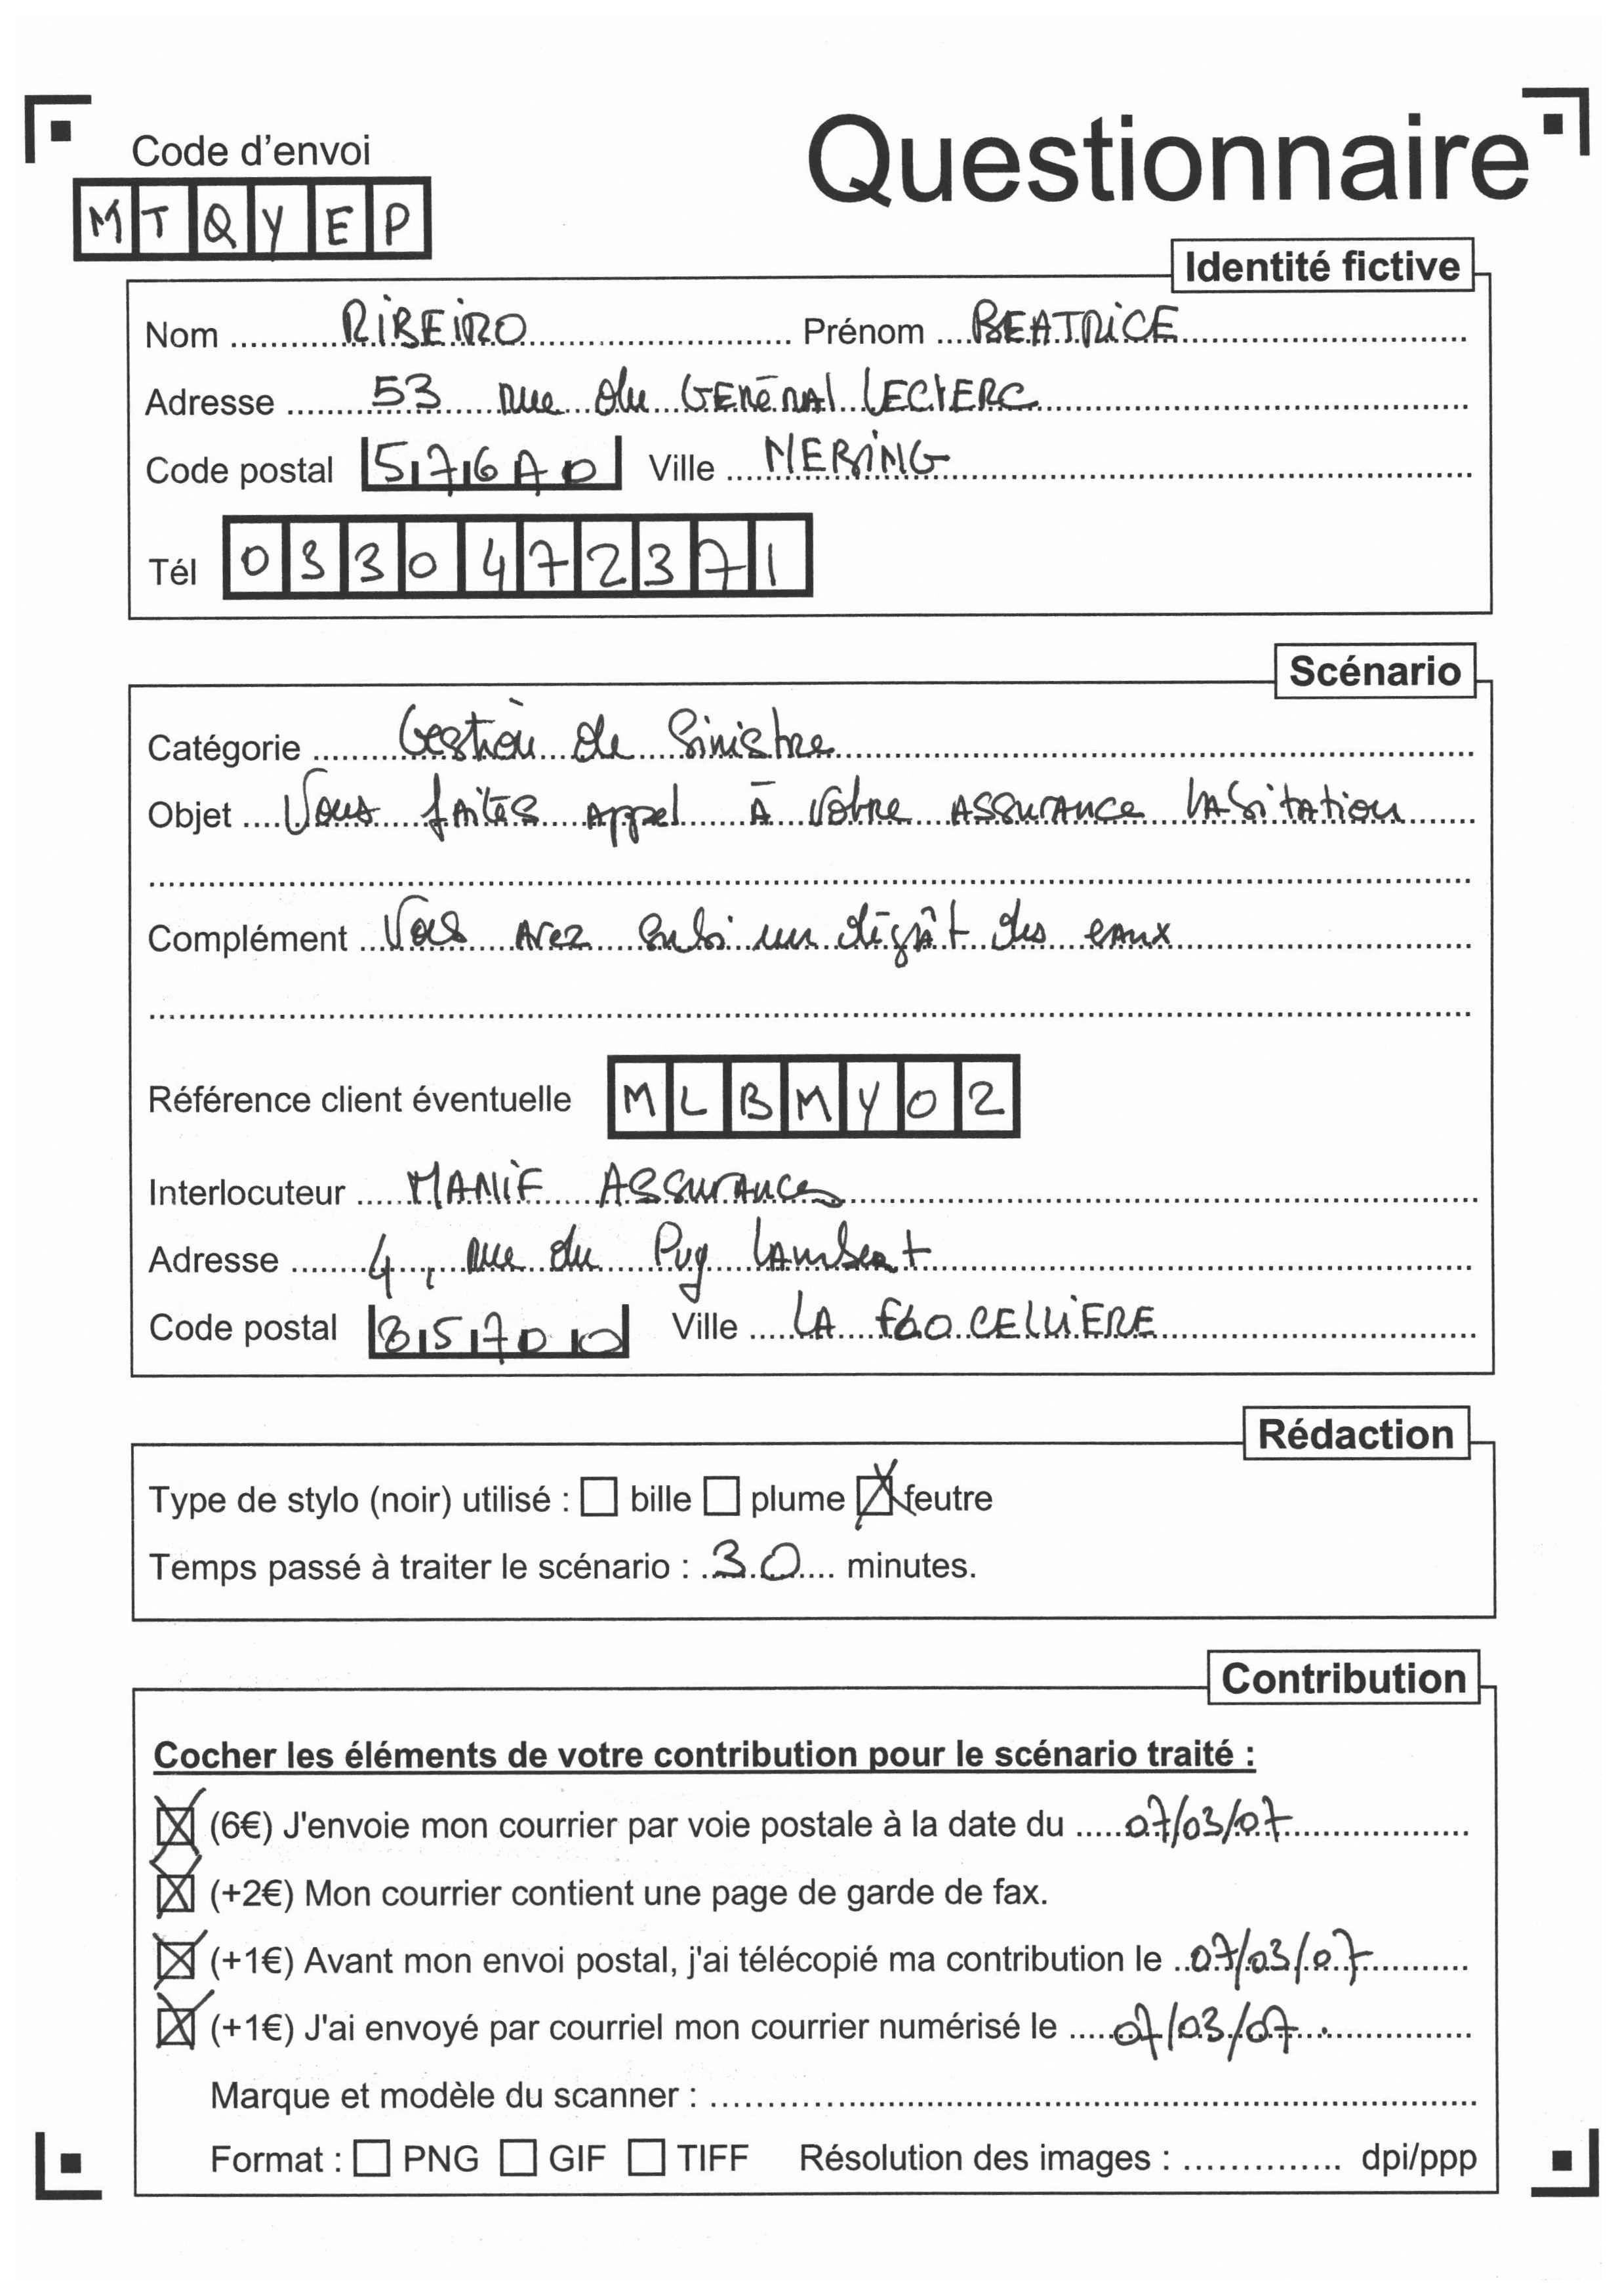 Code d'envoi
Questionnaire
MTQYEP
Identité fictive
Nom RIBEIRO Prénom BEATRICE
Adresse 53 rue du GENERAL LECLERC
Code postal 576 0 Ville
Tél 0330472371
Scénario
Catégorie Gestion de Sinistre
Objet Vous faites appel à votre assurance habitation
Complément Vous avez subi un dégât des eaux
Référence client éventuelle MLBMY02
Interlocuteur MANIF Assurances
Adresse 4, rue du Puy Lambert
Code postal 85700 Ville LA FLOCELLIERE
Rédaction
Type de stylo (noir) utilisé : ☐ bille ☐ plume ☒ feutre
Temps passé à traiter le scénario : 30 minutes.
Contribution
Cocher les éléments de votre contribution pour le scénario traité :
☒ (6€) J'envoie mon courrier par voie postale à la date du 07/03/07
☒ (+2€) Mon courrier contient une page de garde de fax.
☒ (+1€) Avant mon envoi postal, j'ai télécopié ma contribution le 07/03/07
☒ (+1€) J'ai envoyé par courriel mon courrier numérisé le 07/03/07
Marque et modèle du scanner :
Format : ☐ PNG ☐ GIF ☐ TIFF Résolution des images : dpi/ppp